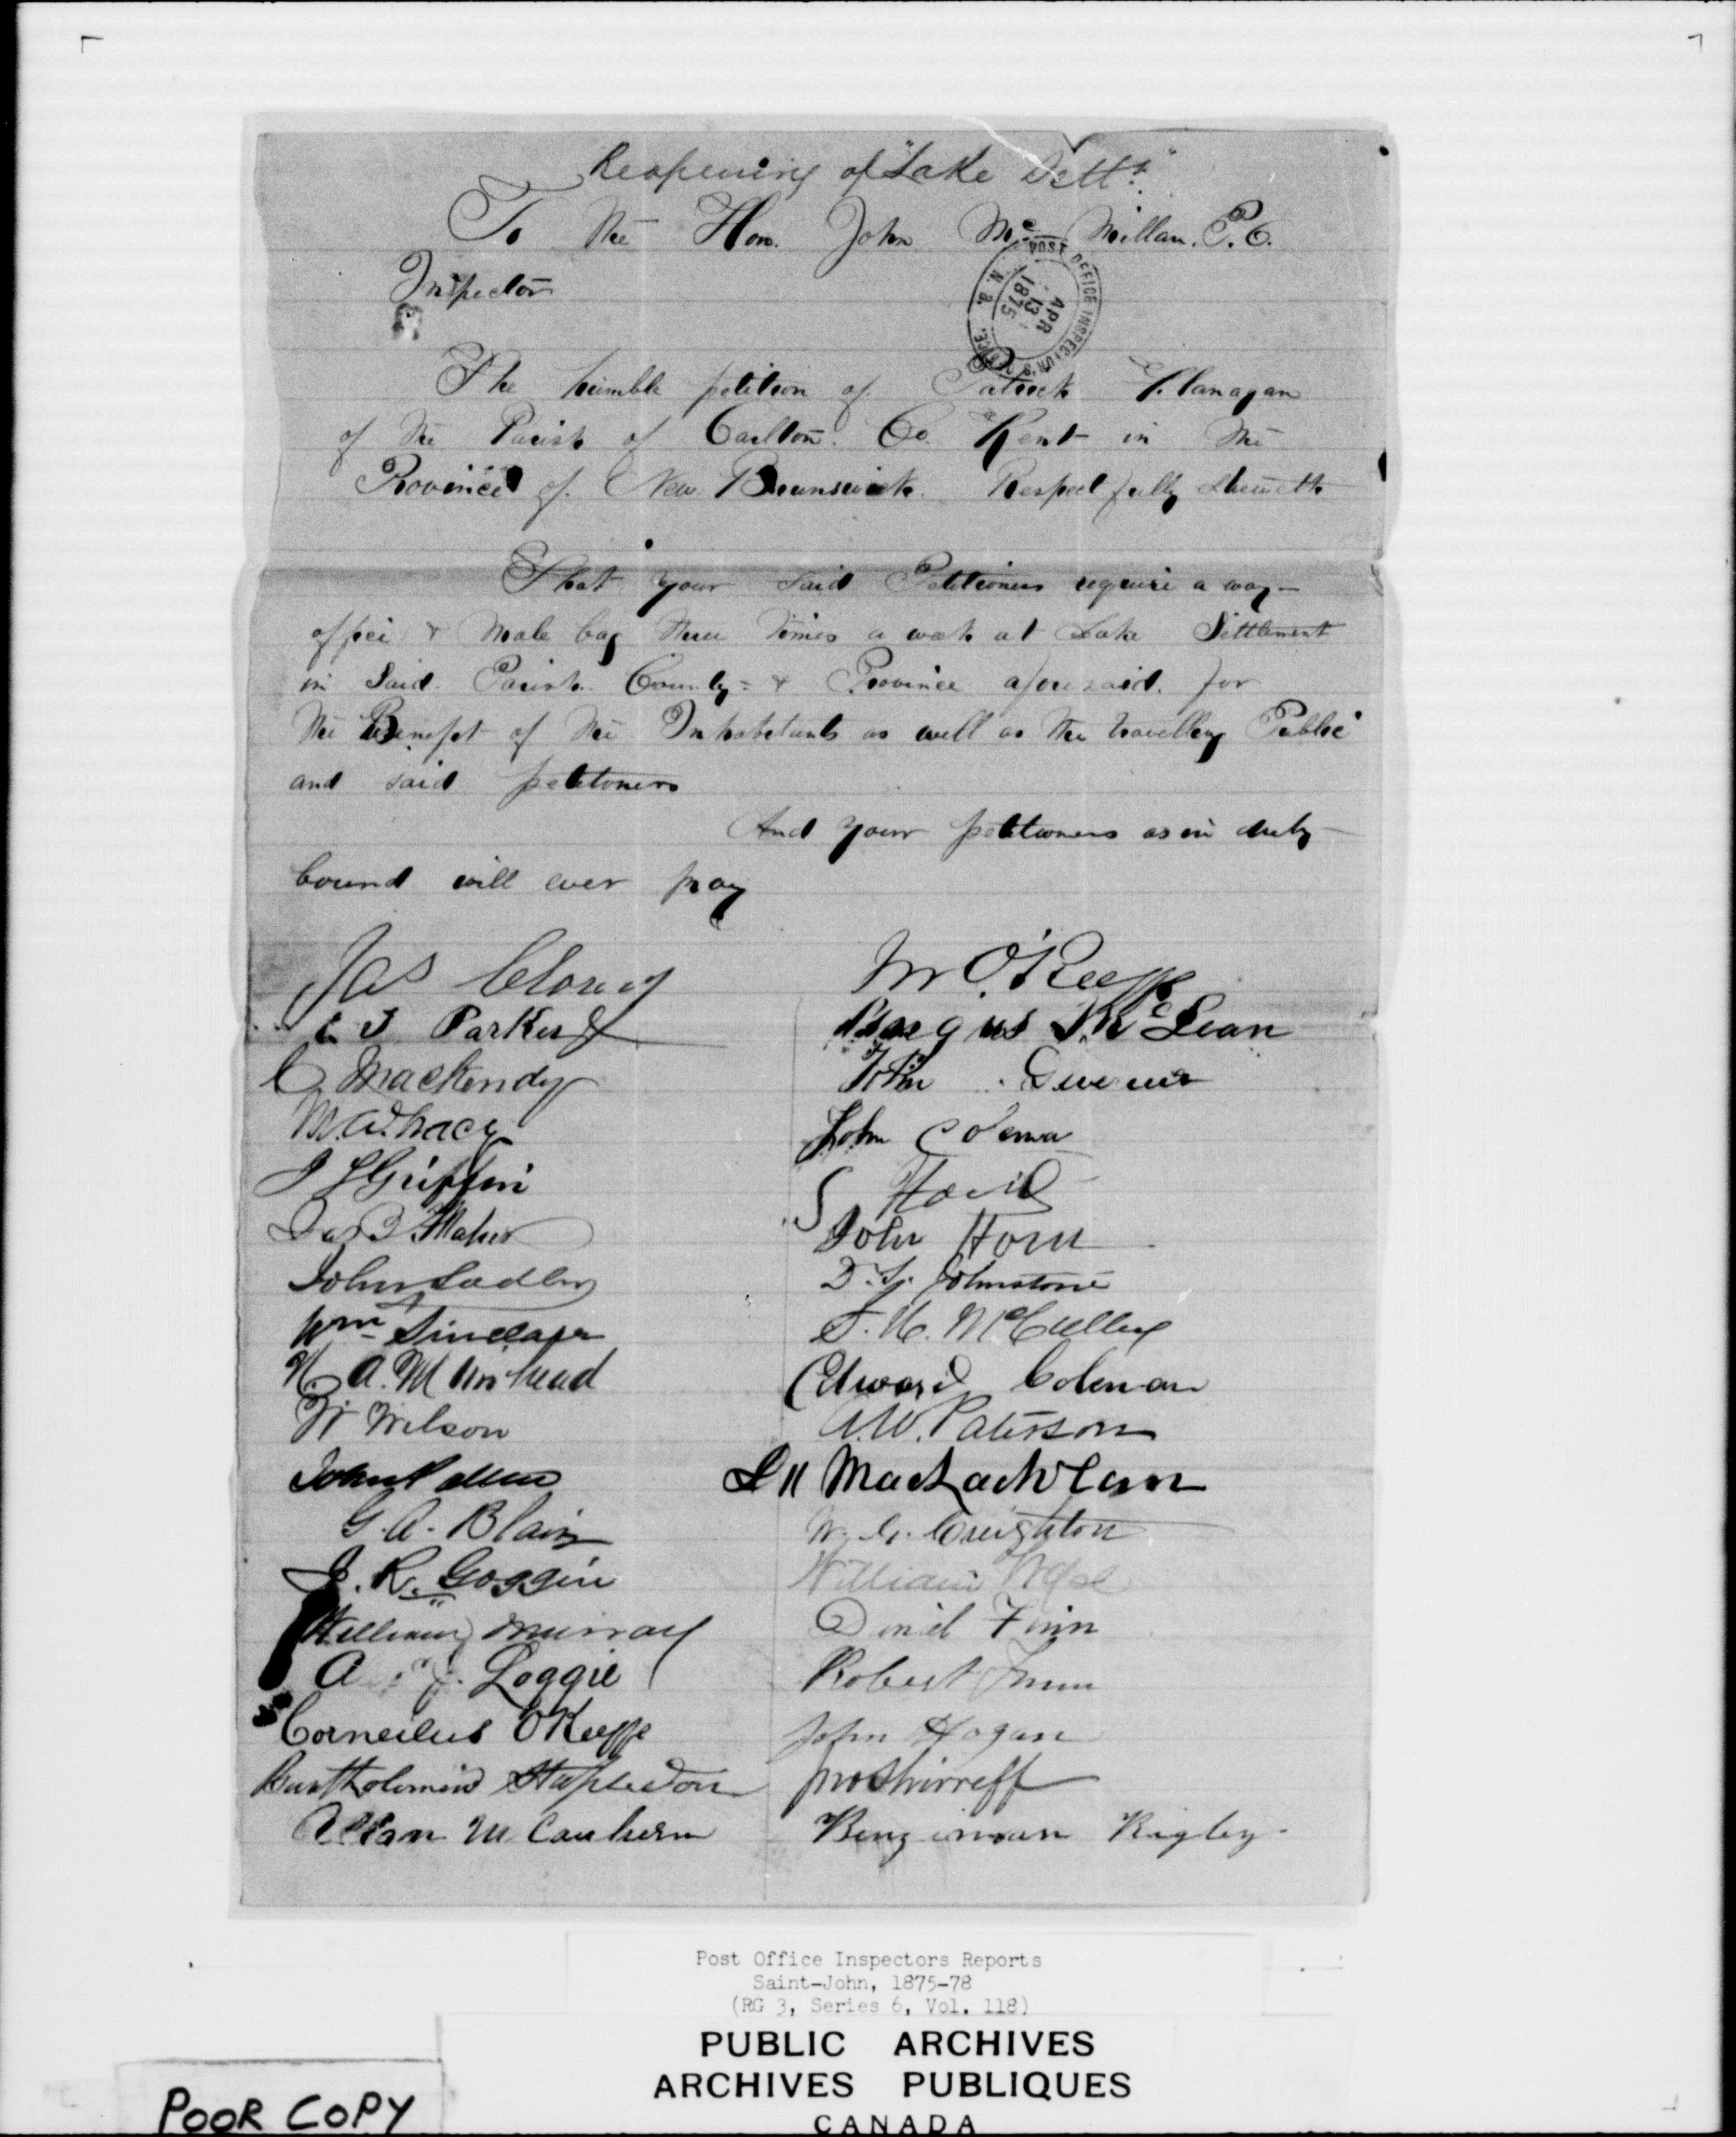 Reopening of "Lake Settt"
To the Hon. John Mc Millan. P. O.
Inspector
POST OFFICE INSPECTOR'S OFFICE. N. B.
APR
13
1875
The humble petition of Patrick Flanagan
of the Parish of Carlton. Co. Kent in the
Province of New Brunswick. Respectfully Sheweth
That your said Petitioners require a way
office & Male bag three times a week at Lake Settlement
in Said Parish County & Province aforesaid. for
the Benefit of the Inhabitants as well as the travelling Public
and said petitoners
And your petitioners as in duty
bound will ever pray
Jas
Parker
C. Mackendy
J Griffin
John Sadler
Wm Sinclair
A. Muirhead
W Wilson
John
G. A. Blair
J. R. Goggin
William Murray
A. Loggie
Corneilus O'Keeffe
Bartholomew Stapledon
Allan
M O'Keeffe
Angus McLean
John
John
S
John Horn
D. G. Johnstone
McCulley
Edward Coleman
A. W. Paterson
MacLachlan
Creighton
William
Daniel Finn
Robert
John Hogan
Jno Shirreff
Benginman Rigley
Post Office Inspectors Reports
Saint-John, 1875-78
(RG 3, Series 6, Vol. 118)
PUBLIC ARCHIVES
ARCHIVES PUBLIQUES
CANADA
POOR COPY